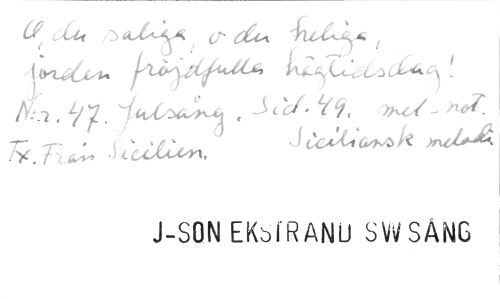 O, du saliga, o du heliga,
jorden fröjdfulla högtidsdag!
N:r. 47. Julsång. Sid. 49. mel-not.
Tx. Från Sicilien. Siciliansk melodi
J-SON EKSTRAND SW SÅNG